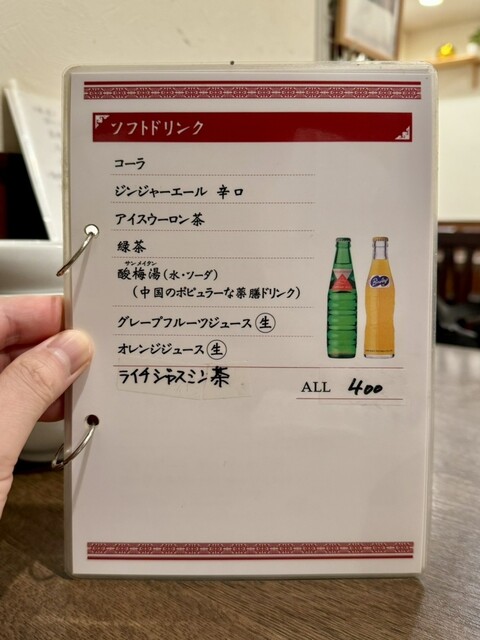 ソフトドリンク
コーラ
ジンジャーエール 辛口
アイスウーロン茶
緑茶
サンメイタン
酸梅湯(水・ソーダ)
(中国のポピュラーな薬膳ドリンク)
グレープフルーツジュース 生
オレンジジュース 生
ライチジャスミン茶
ALL 400